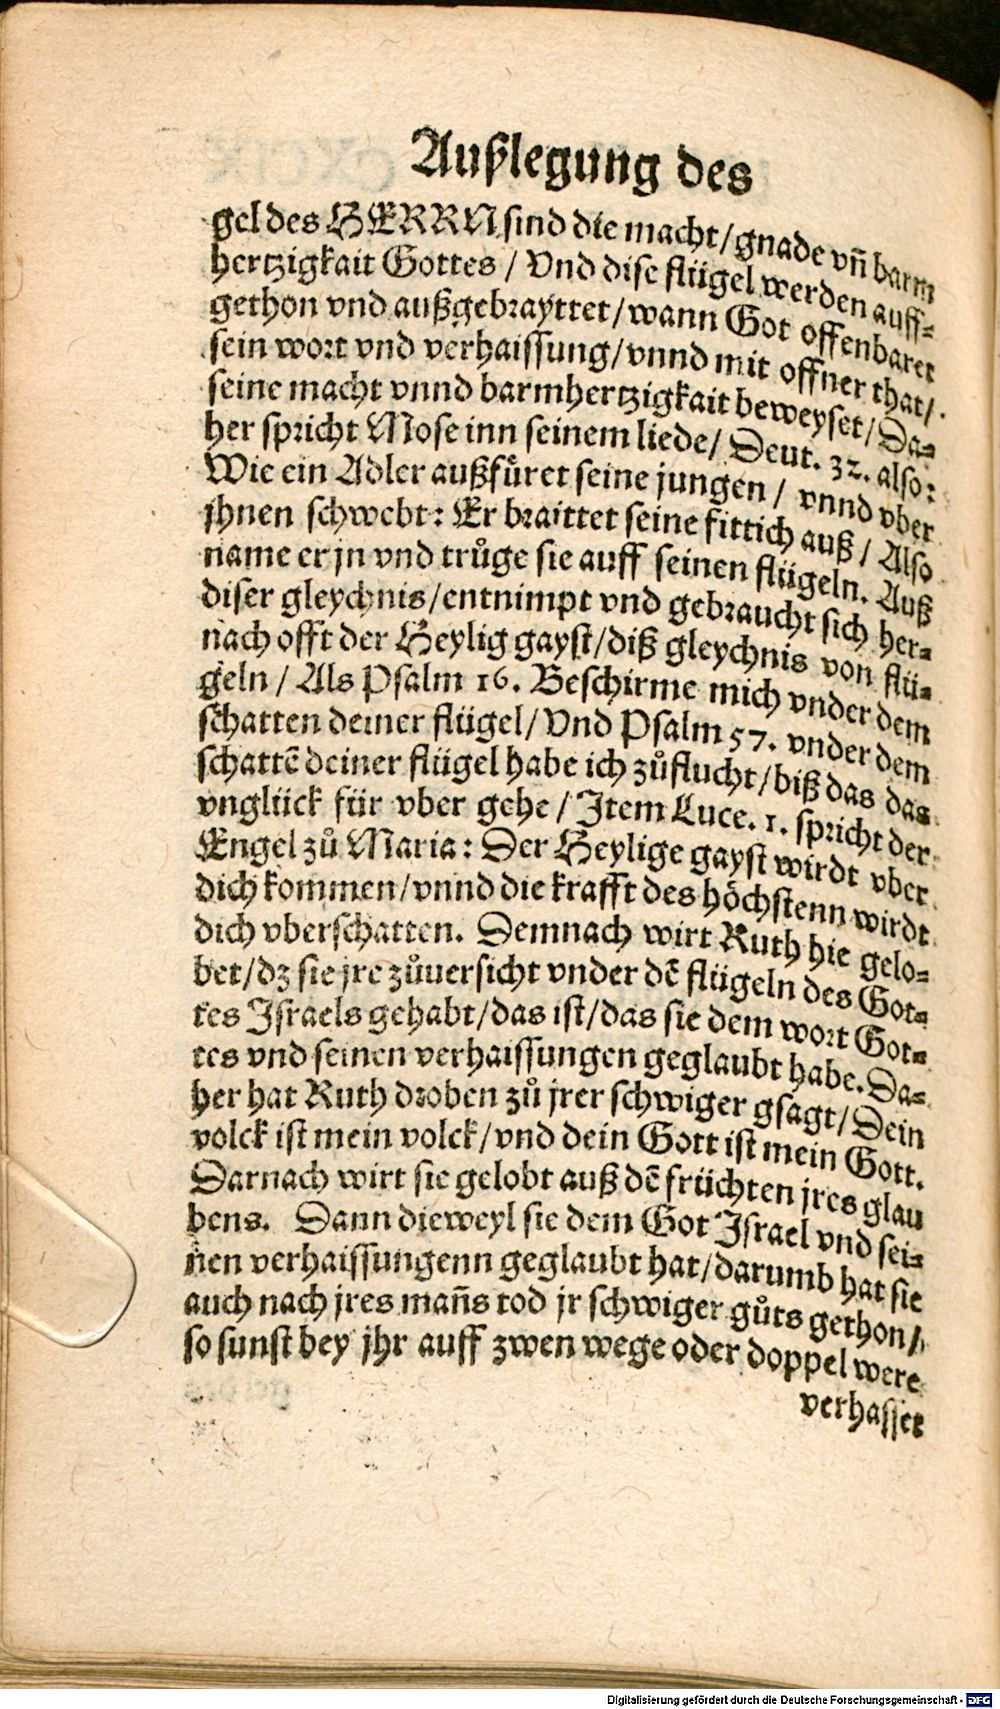 Außlegung des
gel des HERRN sind die macht/gnade vñ barm
hertzigkait Gottes / Vnd dise flügel werden auff-
gethon vnd außgebrayttet/wann Got offenbaret
sein wort vnd verhaissung/vnnd mit offner that/
seine macht vnnd barmhertzigkait beweyset/Da-
her spricht Mose inn seinem liede/ Deut. 32. also:
Wie ein Adler außfůret seine jungen / vnnd vber
jhnen schwebt: Er braittet seine fittich auß / Also
name er jn vnd trůge sie auff seinen flügeln. Auß
diser gleychnis/entnimpt vnd gebraucht sich her-
nach offt der Heylig gayst/diß gleychnis von flü-
geln / Als Psalm 16. Beschirme mich vnder dem
schatten deiner flügel/Vnd Psalm 57. vnder dem
schattē deiner flügel habe ich zůflucht/biß das das
vnglück für vber gehe / Item Luce. 1. spricht der
Engel zů Maria: Der Heylige gayst wirdt vber
dich kommen/vnnd die krafft des höchstenn wirdt
dich vberschatten. Demnach wirt Ruth hie gelo-
bet/dz sie jre zůuersicht vnder dē flügeln des Got-
tes Israels gehabt/das ist/das sie dem wort Got-
tes vnd seinen verhaissungen geglaubt habe. Da-
her hat Ruth droben zů jrer schwiger gsagt/Dein
volck ist mein volck/vnd dein Gott ist mein Gott.
Darnach wirt sie gelobt auß dē früchten jres glau
bens. Dann dieweyl sie dem Got Israel vnd sei-
nen verhaissungenn geglaubt hat/darumb hat sie
auch nach jres mañs tod jr schwiger gůts gethon/
so sunst bey jhr auff zwen wege oder doppel were
verhasset
Digitalisierung gefördert durch die Deutsche Forschungsgemeinschaft - DFG